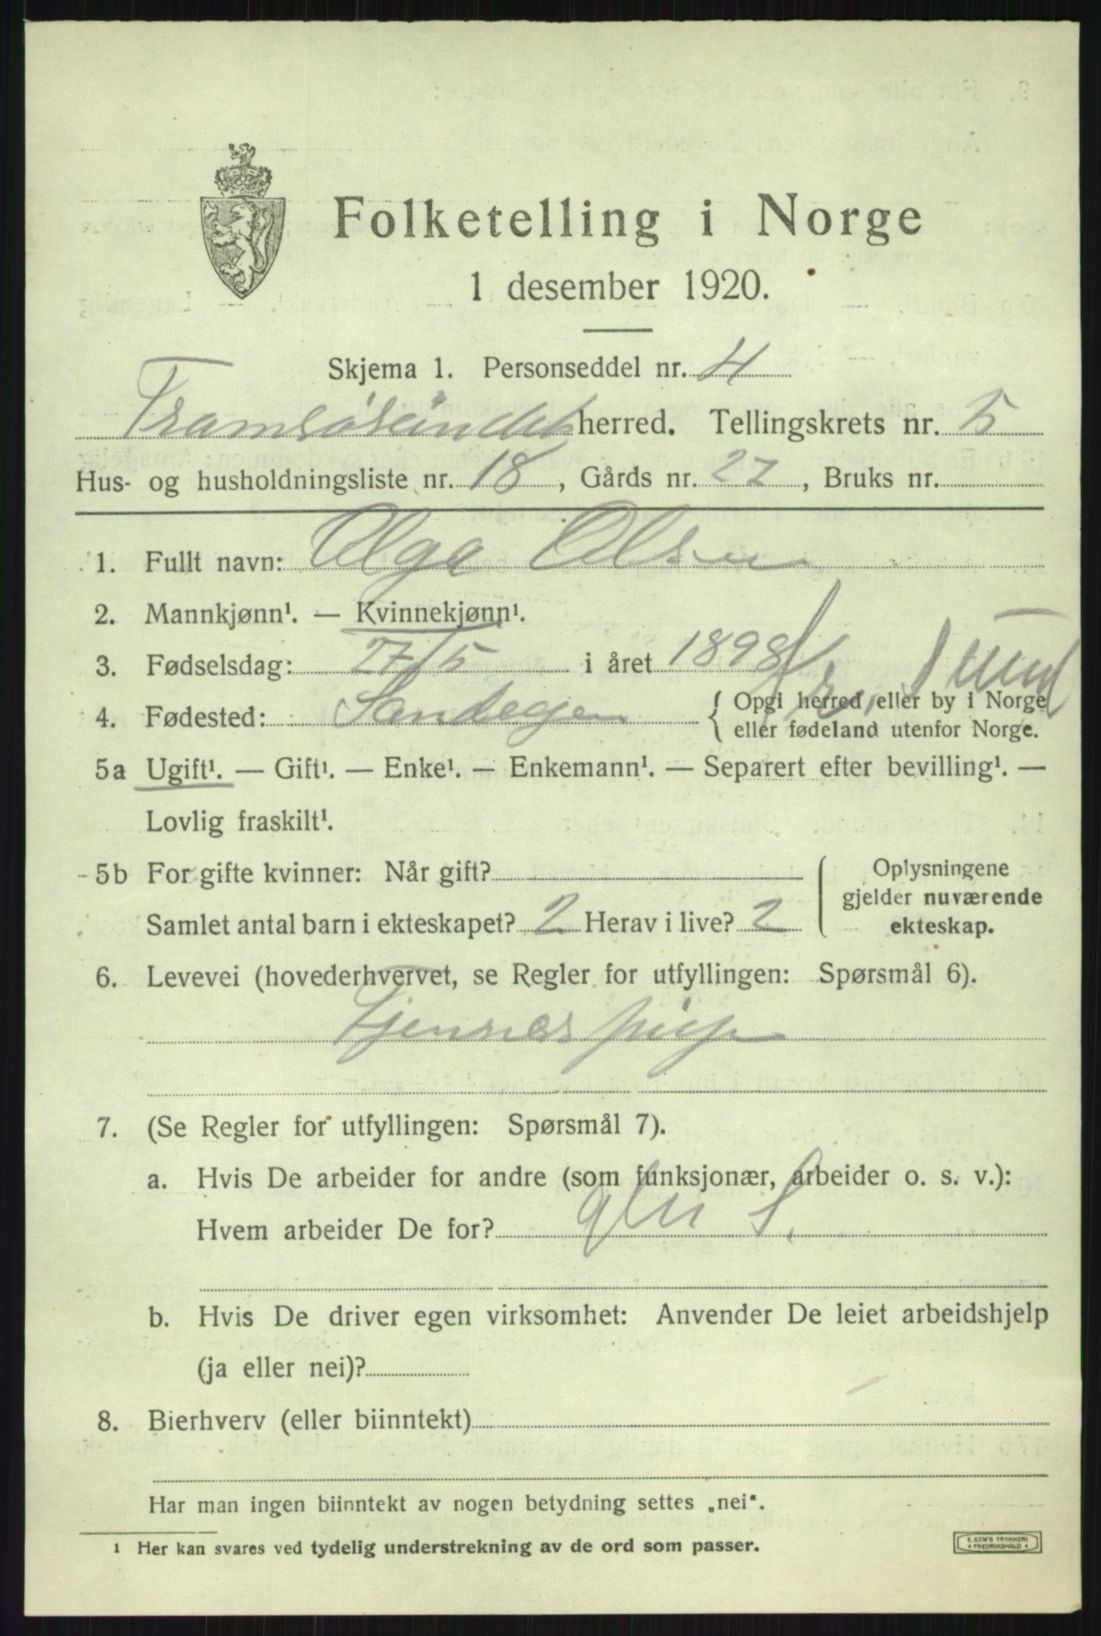 Folketelling i Norge
1 desember 1920.
Skjema 1. Personseddel nr. 4
Tromsøsundets herred. Tellingskrets nr. 5
Hus- og husholdningsliste nr. 18, Gårds nr. 22, Bruks nr.
1. Fullt navn: Olga Olsen
2. Mannkjønn¹. — Kvinnekjønn¹.
3. Fødselsdag: 27/5 i året 1898
4. Fødested: Sandegen { Opgi herred eller by i Norge
eller fødeland utenfor Norge.
5a Ugift¹. — Gift¹. — Enke¹. — Enkemann¹. — Separert efter bevilling¹. —
Lovlig fraskilt¹.
5b For gifte kvinner: Når gift?
Samlet antal barn i ekteskapet? 2 Herav i live? 2
Oplysningene
gjelder nuværende
ekteskap.
6. Levevei (hovederhvervet, se Regler for utfyllingen: Spørsmål 6).
Tjenerspige
7. (Se Regler for utfyllingen: Spørsmål 7).
a. Hvis De arbeider for andre (som funksjonær, arbeider o. s. v.):
Hvem arbeider De for?
b. Hvis De driver egen virksomhet: Anvender De leiet arbeidshjelp
(ja eller nei)?
8. Bierhverv (eller biinntekt)
Har man ingen biinntekt av nogen betydning settes „nei".
¹ Her kan svares ved tydelig understrekning av de ord som passer.
E. SEM'S TRYKKERI
FREDRIKSHALD